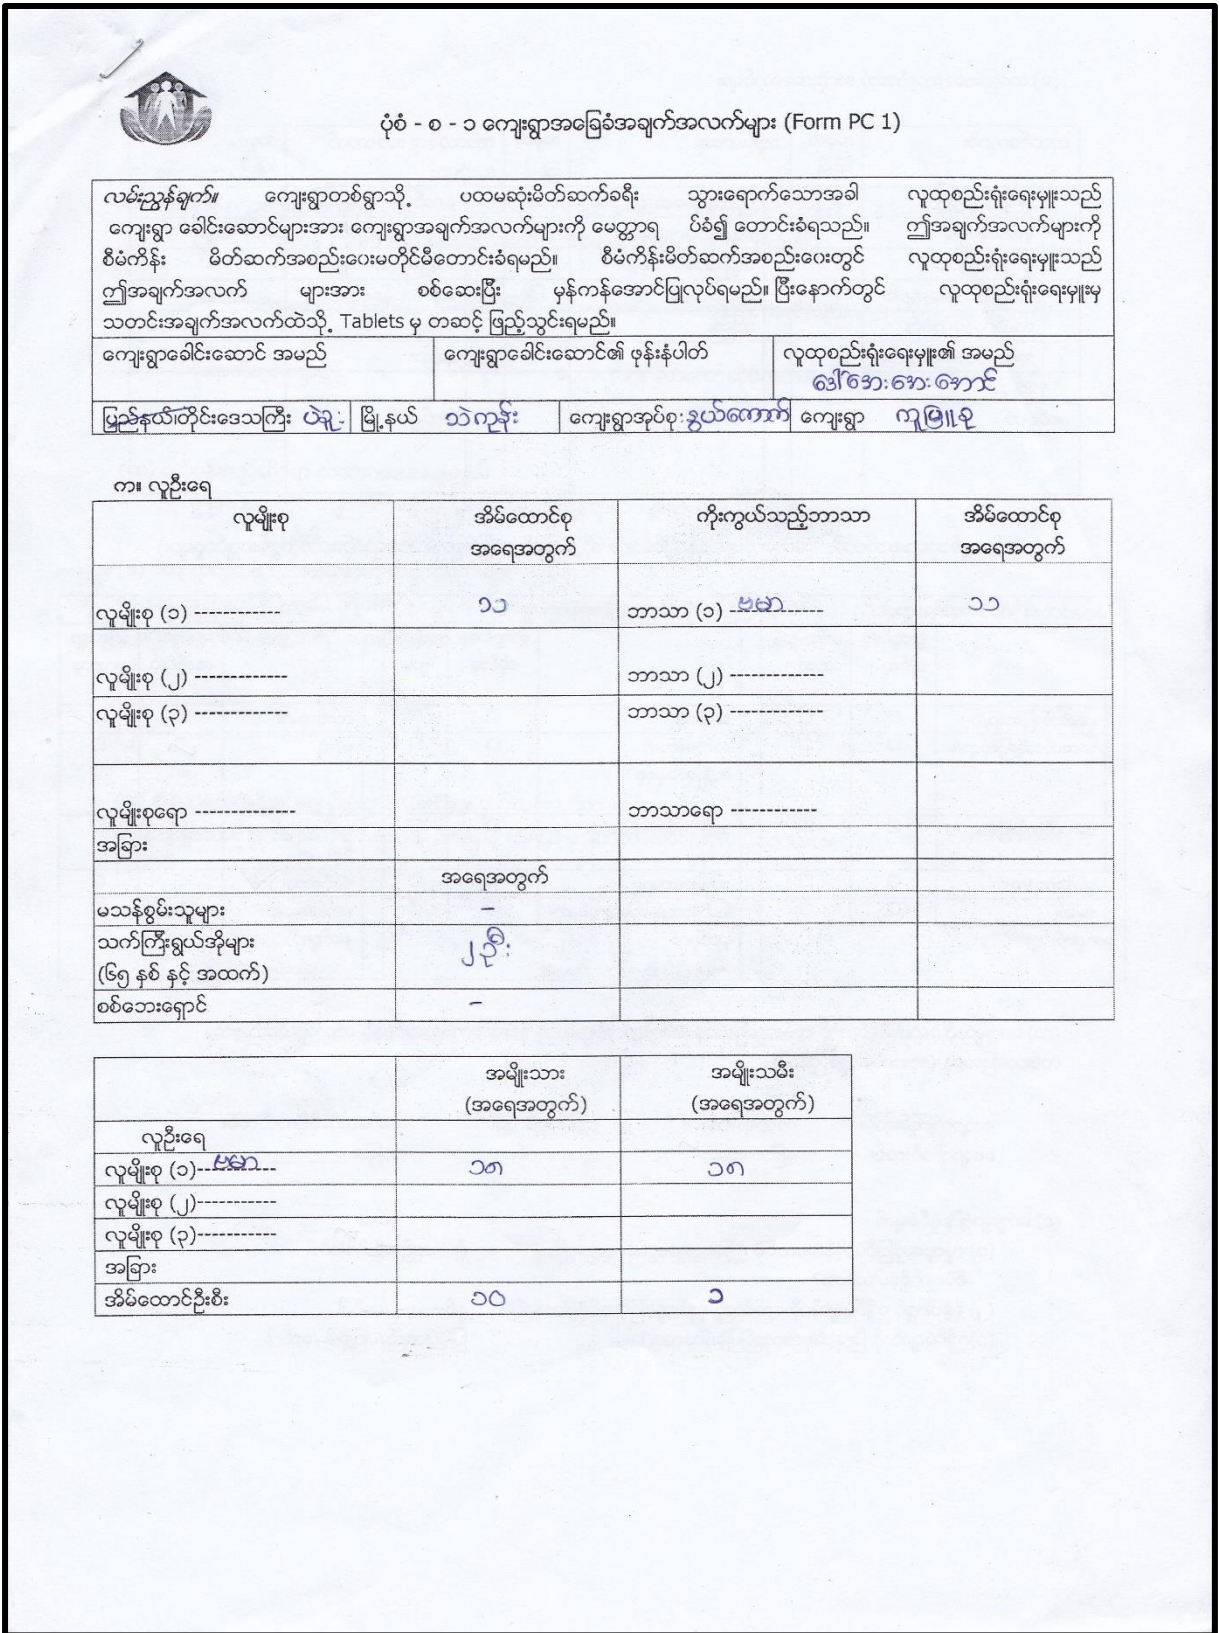 ပုံစံ - စ - ၁ ကျေးရွာအခြေခံအချက်အလက်များ (Form PC 1)
လမ်းညွှန်ချက်။ ကျေးရွာတစ်ရွာသို့ ပထမဆုံးမိတ်ဆက်ခရီး သွားရောက်သောအခါ လူထုစည်းရုံးရေးမှူးသည်
ကျေးရွာ ခေါင်းဆောင်များအား ကျေးရွာအချက်အလက်များကို မေတ္တာရ ပ်ခံ၍ တောင်းခံရသည်။ ဤအချက်အလက်များကို
စီမံကိန်း မိတ်ဆက်အစည်းဝေးမတိုင်မီတောင်းခံရမည်။ စီမံကိန်းမိတ်ဆက်အစည်းဝေးတွင် လူထုစည်းရုံးရေးမှူးသည်
ဤအချက်အလက် များအား စစ်ဆေးပြီး မှန်ကန်အောင်ပြုလုပ်ရမည်။ ပြီးနောက်တွင် လူထုစည်းရုံးရေးမှူးမှ
သတင်းအချက်အလက်ထဲသို့ Tablets မှ တဆင့် ဖြည့်သွင်းရမည်။
ကျေးရွာခေါင်းဆောင် အမည် ကျေးရွာခေါင်းဆောင်၏ ဖုန်းနံပါတ် လူထုစည်းရုံးရေးမှူး၏ အမည်
ဒေါ်အေးအေးအောင်
ပြည်နယ်၊တိုင်းဒေသကြီး ပဲခူး မြို့နယ် သဲကုန်း ကျေးရွာအုပ်စု နွယ်ကောက် ကျေးရွာ ကူဖြူစု
က။ လူဦးရေ
လူမျိုးစု အိမ်ထောင်စု ကိုးကွယ်သည့်ဘာသာ အိမ်ထောင်စု
အရေအတွက် အရေအတွက်
လူမျိုးစု (၁) ------------ ၁၁ ဘာသာ (၁) ဗမာ ------------ ၁၁
လူမျိုးစု (၂) ------------- ဘာသာ (၂) -------------
လူမျိုးစု (၃) ------------- ဘာသာ (၃) -------------
လူမျိုးစုရော -------------- ဘာသာရော ------------
အခြား
အရေအတွက်
မသန်စွမ်းသူများ -
သက်ကြီးရွယ်အိုများ ၂ဦး
(၆၅ နှစ် နှင့် အထက်)
စစ်ဘေးရှောင် -
အမျိုးသား အမျိုးသမီး
(အရေအတွက်) (အရေအတွက်)
လူဦးရေ
လူမျိုးစု (၁) ဗမာ ----------- ၁၈ ၁၈
လူမျိုးစု (၂)-----------
လူမျိုးစု (၃)-----------
အခြား
အိမ်ထောင်ဦးစီး ၁၀ ၁